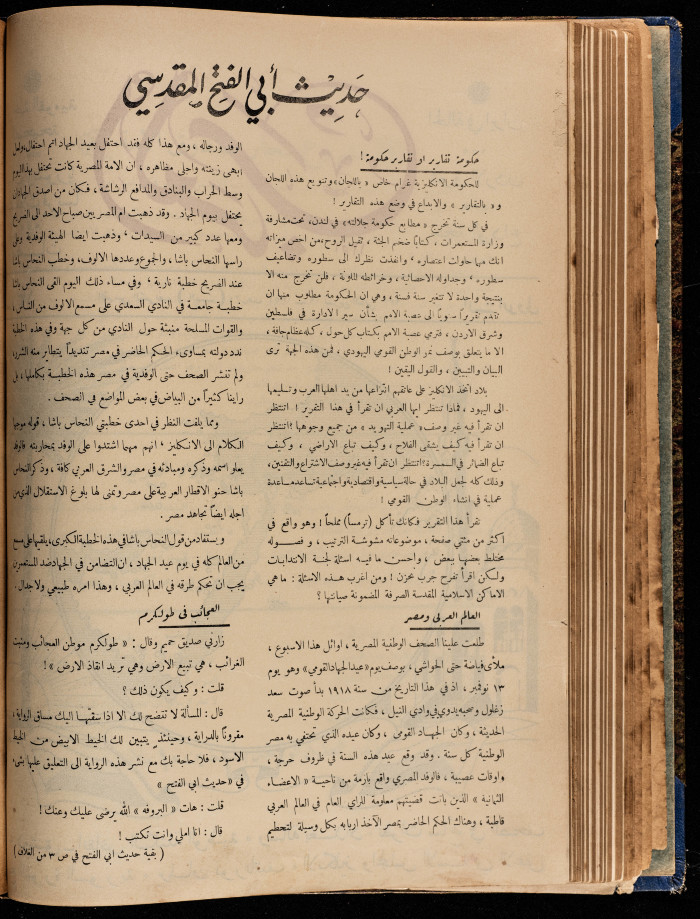 حديث أبي الفتح المقدسي
حكومة تقارير او تقارير حكومة !
للحكومة الانكليزية غرام خاص « باللجان » وتنويع هذه اللجان
و« بالتقارير » والابداع في وضع هذه التقارير !
في كل سنة تخرج « مطابع حكومة جلالته » في لندن، تحت مشارفة
وزارة المستعمرات، كتاباً ضخم الجثة ، ثقيل الروح، من اخص ميزاته
انك مهما حاولت اعتصاره ، وانفذت نظرك الى سطوره وتضاعيف
سطوره ، وجداوله الاحصائية ، وخرائطه الملونة ، فلن تخرج منه الا
بنتيجة واحدة لا تتغير سنة فسنة ، وهي ان الحكومة مطلوب منها ان
تقدم تقريراً سنوياً الى عصبة الامم بشأن سير الادارة في فلسطين
وشرق الاردن ، فترمي عصبة الامم بكتاب كل حول ، كله عظام جافة ،
الا ما يتعلق بوصف نمو الوطن القومي اليهودي ، فمن هذه الجهة ترى
البيان والتبيين ، والقول اليقين !
بلاد اتخذ الانكليز على عاتقهم انتزاعها من يد اهلها العرب وتسليمها
الى اليهود ، فماذا تنتظر ايها العربي ان تقرأ في هذا التقرير ! اتنتظر
ان تقرأ فيه غير وصف « عملية التهويد » من جميع وجوهها ؟ اتنتظر
ان تقرأ فيه كيف يشقى الفلاح ، وكيف تباع الاراضي ، وكيف
تباع الضمائر في السمسرة ؟ اتنتظر ان تقرأ فيه غير وصف الاشتراع والتقنين،
وذلك كله لجعل البلاد في حالة سياسية واقتصادية واجتماعية تساعد مساعدة
عملية في انشاء الوطن القومي !
تقرأ هذا التقرير فكانك تأكل ( ترمساً ) مملحاً ! وهو واقع في
اكثر من مئتي صفحة ، موضوعاته مشوشة الترتيب ، و فصوله
مختلط بعضها ببعض ، واحسن ما فيه اسئلة لجنة الانتدابات
ولكن اقرأ تفرح جرب تحزن ! ومن اغرب هذه الاسئلة : ما هي
الاماكن الاسلامية المقدسة الصرفة المضمونة صيانتها ؟
العالم العربي ومصر
طلعت علينا الصحف الوطنية المصرية ، اوائل هذا الاسبوع ،
ملأى فياضة حتى الحواشي ، بوصف يوم « عيد الجهاد القومي » وهو يوم
١٣ نوفمبر ، اذ في هذا التاريخ من سنة ١٩١٨ بدأ صوت سعد
زغلول وصحبه يدوي في وادي النيل ، فكانت الحركة الوطنية المصرية
الحديثة ، وكان الجهاد القومي ، وكان عيده الذي تحتفي به مصر
الوطنية كل سنة . وقد وقع عيد هذه السنة في ظروف حرجة ،
واوقات عصيبة ، فالوفد المصري واقع بازمة من ناحية « الاعضاء
الثمانية » الذين باتت قضيتهم معلومة للرأي العام في العالم العربي
قاطبة ، وهناك الحكم الحاضر بمصر الآخذ اربابه بكل وسيلة لتحطيم
الوفد ورجاله ، ومع هذا كله فقد احتفل بعيد الجهاد اتم احتفال، ولعل
ابهى زينته واحلى مظاهره ، ان الامة المصرية كانت تحتفل بهذا اليوم
وسط الحراب والبنادق والمدافع الرشاشة ، فكان من اصدق الجهاد ان
يحتفل بيوم الجهاد . وقد ذهبت ام المصريين صباح الاحد الى الضريح
ومعها عدد كبير من السيدات ، وذهبت ايضا الهيئة الوفدية وعلى
رأسها النحاس باشا ، والجموع وعددها الالوف، وخطب النحاس باشا
عند الضريح خطبة نارية ، وفي مساء ذلك اليوم القى النحاس باشا
خطبة جامعة في النادي السعدي على مسمع الالوف من الناس ،
والقوات المسلحة منبثة حول النادي من كل جهة وفي هذه الخطبة
ندد دولته بمساوىء الحكم الحاضر في مصر تنديداً يتطاير منه الشرر،
ولم تنشر الصحف حتى الوفدية في مصر هذه الخطبة بكاملها ، بل
رأينا كثيراً من البياض في بعض المواضع في الصحف .
ومما يلفت النظر في احدى خطبتي النحاس باشا ، قوله موجها
الكلام الى الانكليز ، انهم مهما اشتدوا على الوفد بمحاربته فالوفد
يعلو اسمه وذكره ومبادئه في مصر والشرق العربي كافة ، وذكر النحاس
باشا حنو الاقطار العربية على مصر وتمنى لها بلوغ الاستقلال الذي من
اجله ايضاً تجاهد مصر .
ويستفاد من قول النحاس باشا في هذه الخطبة الكبرى، يلقيها على مسمع
من العالم كله في يوم عيد الجهاد ، ان التضامن في الجهاد ضد المستعمرين
يجب ان تحكم طرقه في العالم العربي ، وهذا امره طبيعي ولا جدال .
العجائب في طولكرم
زارني صديق حميم وقال : « طولكرم موطن العجائب ومنبت
الغرائب ، هي تبيع الارض وهي تريد انقاذ الارض » !
قلت : وكيف يكون ذلك ؟
قال : المسألة لا تتضح لك الا اذا سقتها اليك مساق الرواية ،
مقروناً بالدراية ، وحينئذ يتبين لك الخيط الابيض من الخيط
الاسود ، فلا حاجة بك مع نشر هذه الرواية الى التعليق عليها بشيء
في « حديث ابي الفتح »
قلت : هات « البروفه » الله يرضى عليك وعنك !
قال : انا املي وانت تكتب !
( بقية حديث ابي الفتح في ص ٣ من الغلاف )